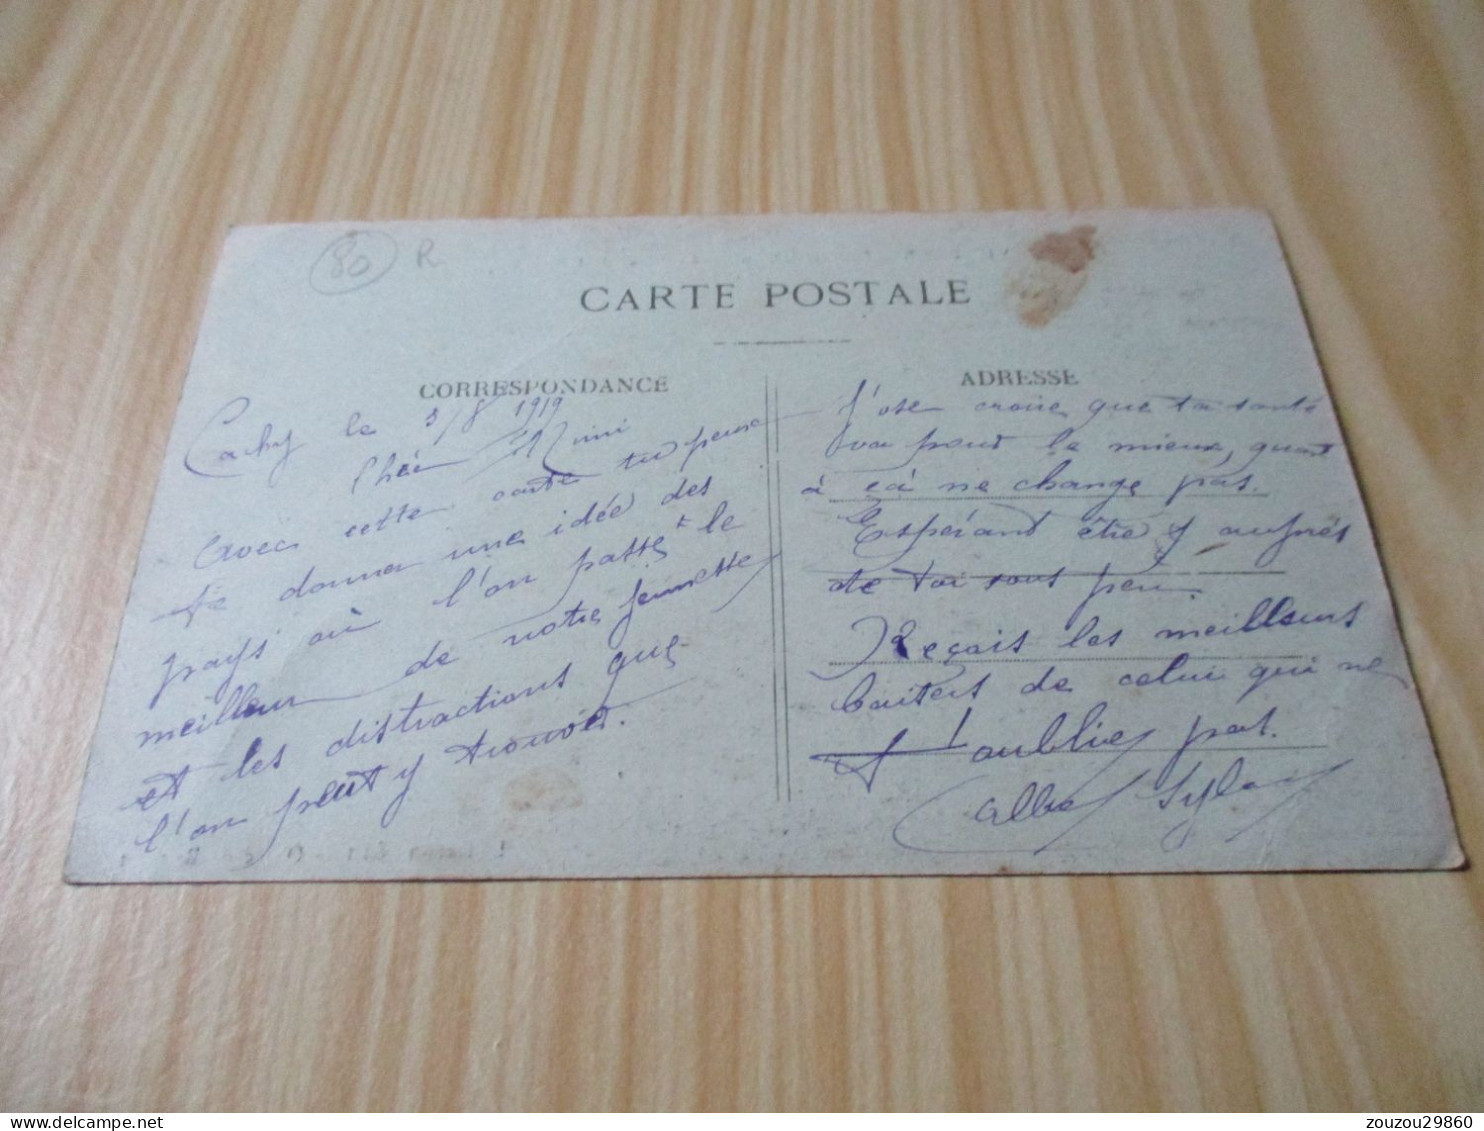 80 R
CARTE POSTALE
CORRESPONDANCE
Cachy le 3/8 1919
Avec cette carte tu peux
te donner une idée des
pays où l'on passe le
meilleur de notre jeunesse
et les distractions que
l'on peut y trouver.
ADRESSE
J'ose croire que ta santé
va pour le mieux, quant
à çà ne change pas.
Espérant être y auprès
de toi sous peu.
Reçois les meilleurs
baisers de celui qui ne
t'oublie pas.
zouzou29860